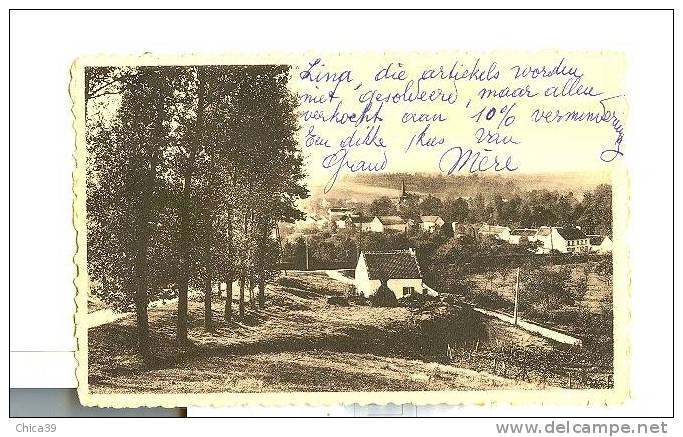 Lina, die artiekels worden
niet gesolveerd, maar allen
verkocht aan 10% vermindering
Een dikke kus van
Grand Mère
Chica39
www.delcampe.net